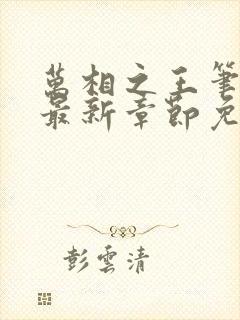 萬相之王筆
最新章節免
彭雲清